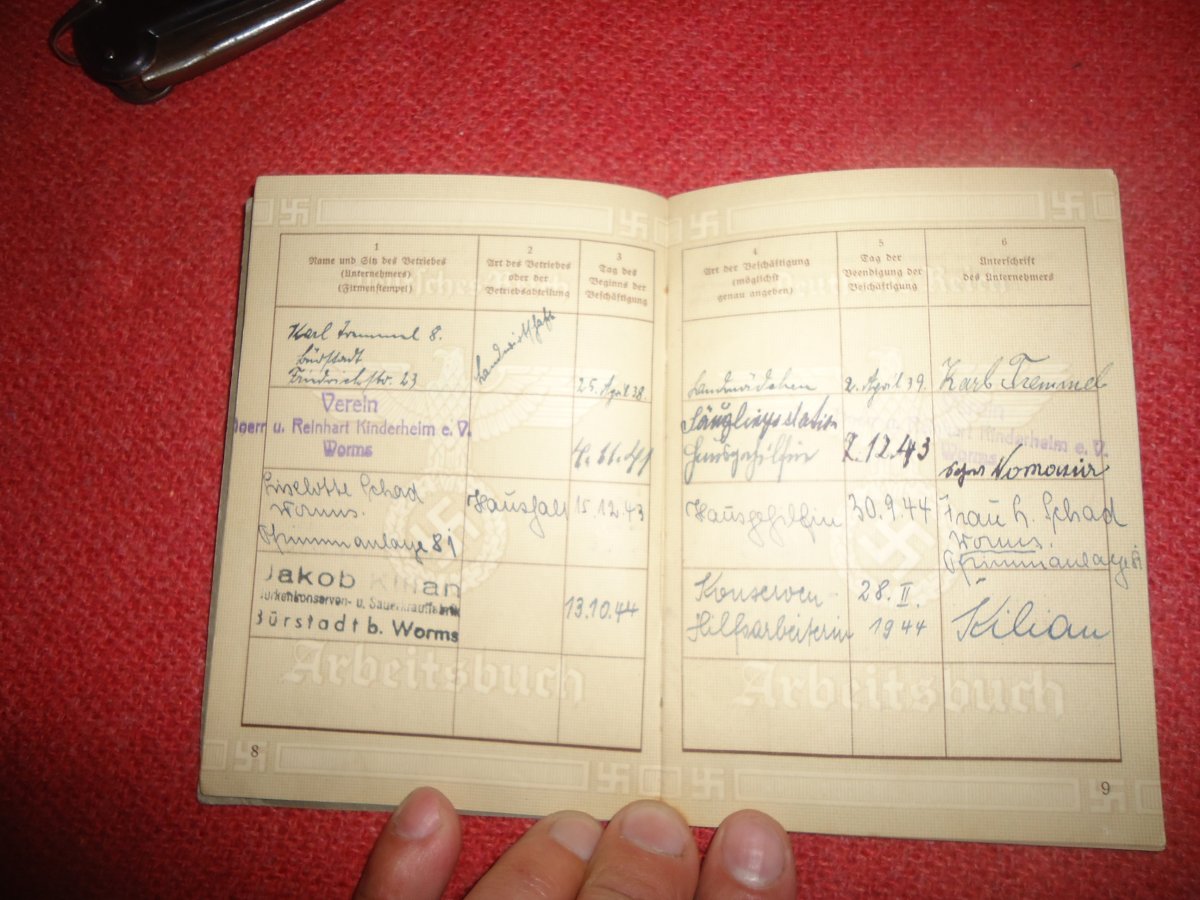 1
Name und Sitz des Betriebes
(Unternehmers)
(Firmenstempel)
2
Art des Betriebes
oder der
Betriebsabteilung
3
Tag des
Beginns der
Beschäftigung
Karl Tremmel 8.
Bürstadt
Friedrichstr. 23
Landwirtschaft
25. April 38.
Verein
u. Reinhart Kinderheim e. V.
Worms
4. 11. 41
Liselotte Schad
Worms.
Pfrimmanlage 81
Haushalt
15.12.43
Jakob Kilian
Gurkenkonserven- u. Sauerkrautfabrik
Bürstadt b. Worms
13.10.44
Arbeitsbuch
8
4
Art der Beschäftigung
(möglichst
genau angeben)
5
Tag der
Beendigung der
Beschäftigung
6
Unterschrift
des Unternehmers
Deutsches Reich
Landmädchen
2. April 39.
Karl Tremmel
Säuglingsstation
Hausgehilfin
2.12.43
u. Reinhart Kinderheim e. V.
Worms
Hausgehilfin
30.9.44
Frau L. Schad
Worms.
Pfrimmanlage
Konserven-
Hilfsarbeiterin
28. II.
1944
Kilian
Arbeitsbuch
9